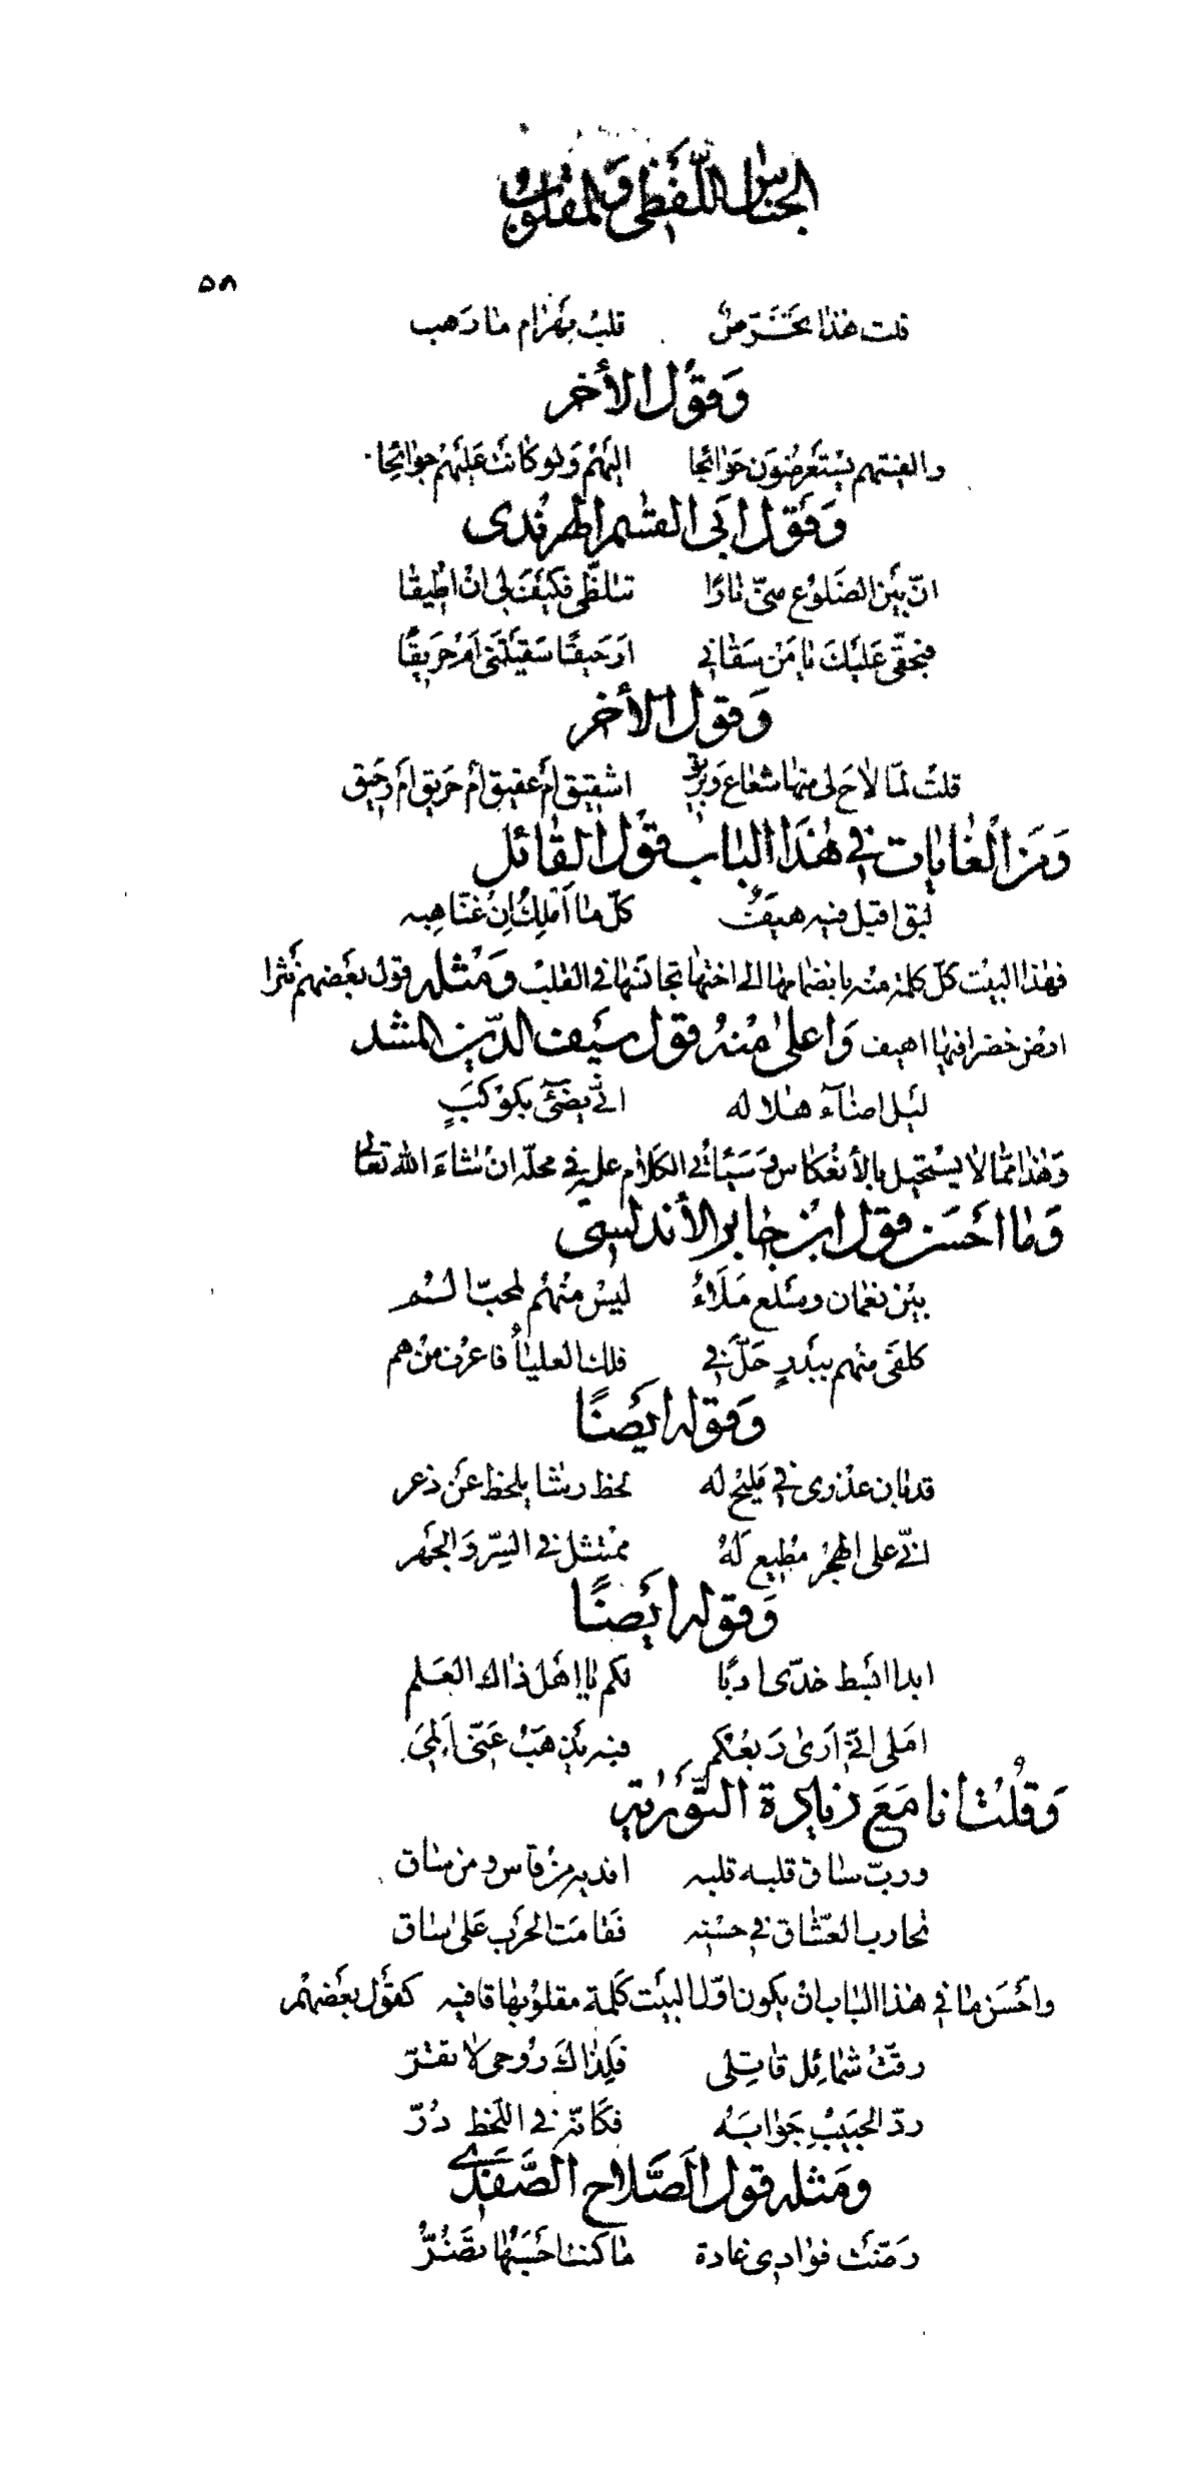 الجناس اللّفظي والمقلوب
٥٨
قلت هٰذا بختسر من قلب بهرام ما رهب
وَقَوْلُ الأخر
والفيتهم يستعرضون حوائجا اليهم ولو كانت عليهم جوائحا
وَقَوْل ابى القٰسم الهرندى
انّ بين الضلوع منّى نارًا تتلظّى فكيف لى ان اطيقا
فبحقّى عليك يا من سقانى ارحيقًا سقيتنى ام حريقًا
وَقول الأخر
قلت لمّا لاح لى منها شعاع وبريق اشقيق أم عقيق أم حريق أم رحيق
وَمن الغايات في هٰذا الباب قول القائل
لبق اقبل فيه هيف كلّ ما أملك ان غنّا هبه
فهٰذا البيت كلّ كلمة منه بانضمامها الى اختها تجانسها في القلب وَمثله قول بعضهم نثرا
ارض خضرا فيها اهيف وَاعلى منه قول سيف الدّين المشد
ليل اضآء هلاله انّى يضئ بكوكبٍ
وَهٰذا ممّا لا يستحيل بالأنعكاس وَسيأتى الكلام عليه في محلّه ان شاءَ الله تعالى
وَما احسن قول ابن جابر الأندلسى
بين نعمان وسلع ملاءُ ليس منهم لمحبّ السم
كلفى منهم ببدرٍ حلّ في فلك العلياء فاعرف من هم
وَقوله ايضًا
قد بان عذرى في مليح له لحظ رشا يلحظ عن ذعر
انّى على الهجر مطيع له ممتثل في السّر وَالجهر
وَقوله ايضًا
ابدا ابسط خدّى ادبًا لكم يا اهل ذاك العلم
املى انّى ارى ربعكم فبه يذهب عنّى ألمى
وَقُلت أنا مَعَ زيادة التّوْرية
وربّ ساق قلبه قلبه افديه من قاس ومن ساق
تحارب العشّاق في حسنه فقامت الحرب على ساق
واحسن ما في هٰذا الباب ان يكون اوّل البيت كلمة مقلوبها قافيه كقول بعضهم
رقّت شمائل قاتلى فلذاك روحى لا تقرّ
ردّ الحبيب جوابه فكأنّه في اللّحظ درّ
ومثله قول الصّلاح الصّفدى
رضّت فؤادى غادة ما كنت احسبها تضرّ